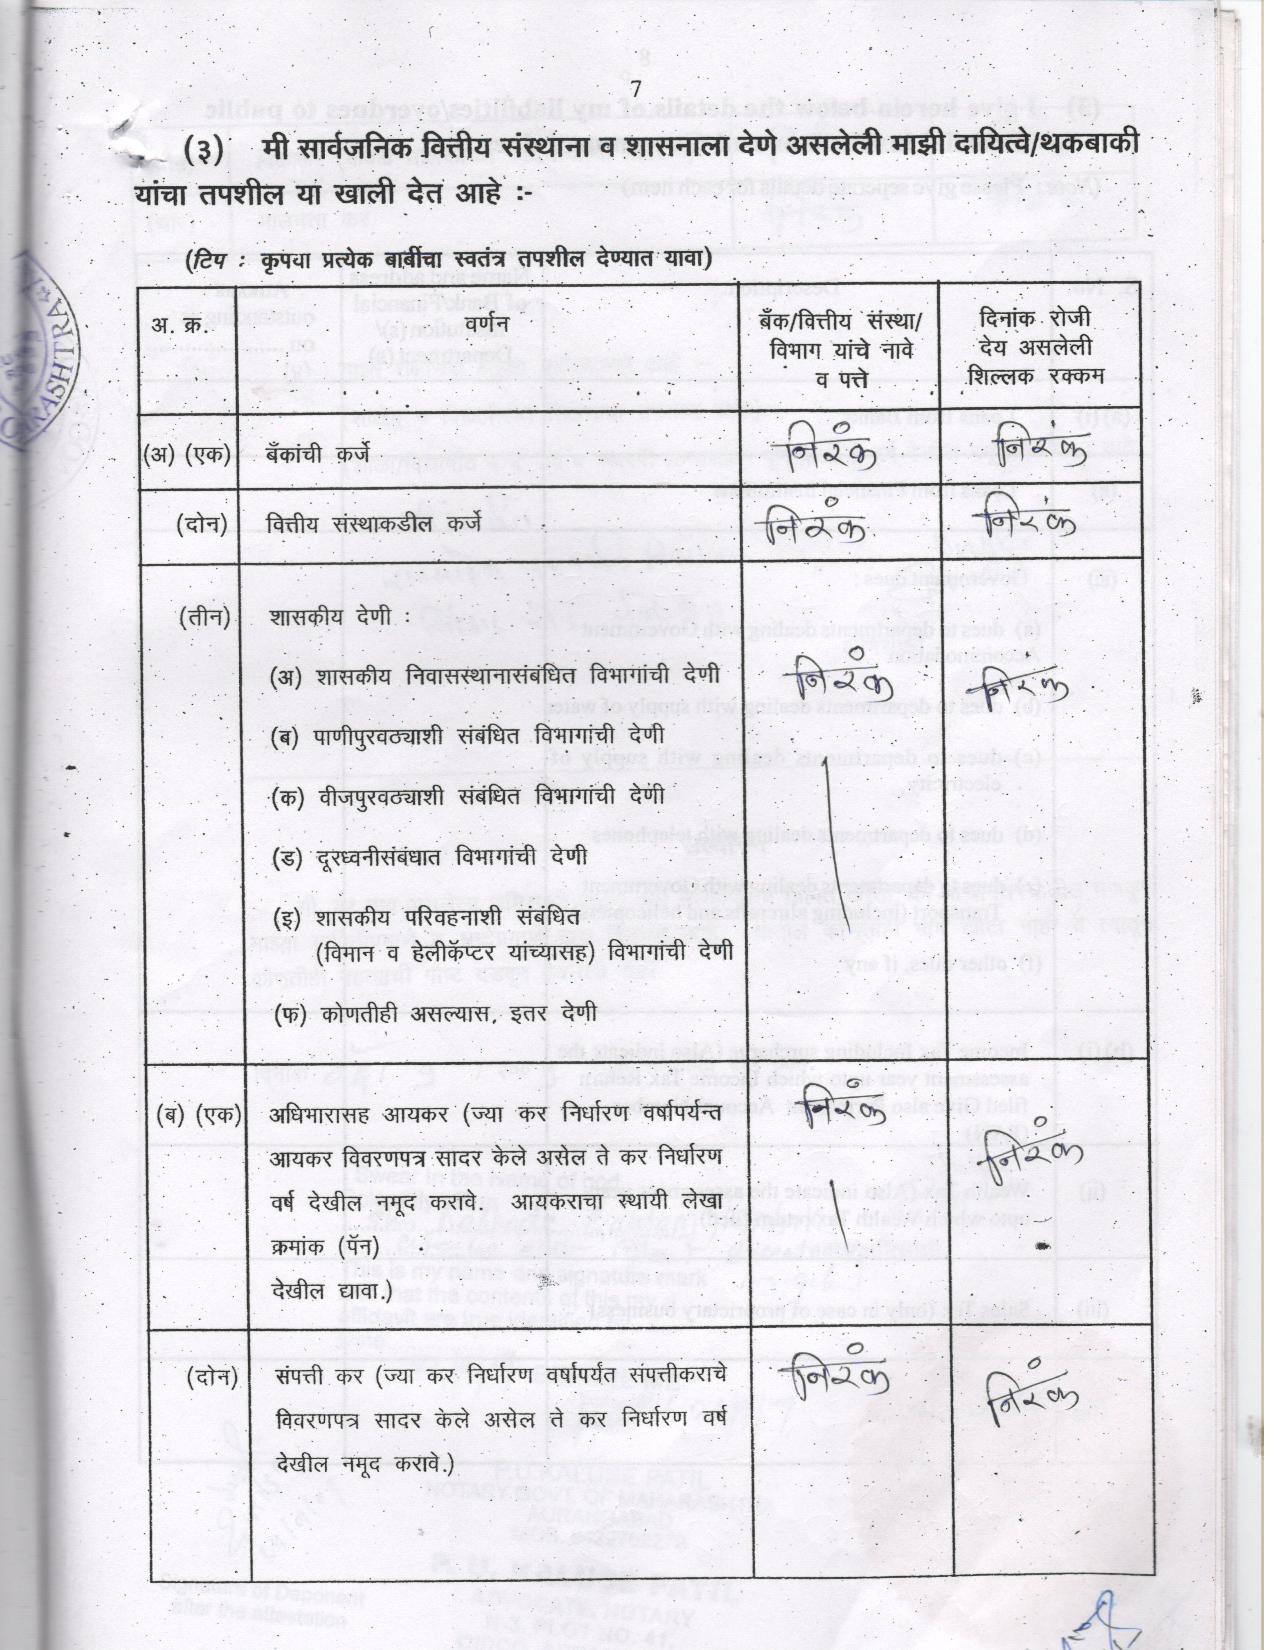 7
(३) मी सार्वजनिक वित्तीय संस्थाना व शासनाला देणे असलेली माझी दायित्वे/थकबाकी
यांचा तपशील या खाली देत आहे :-
(टिप : कृपया प्रत्येक बाबींचा स्वतंत्र तपशील देण्यात यावा)
अ. क्र.
वर्णन
बँक/वित्तीय संस्था/
विभाग यांचे नावे
व पत्ते
दिनांक रोजी
देय असलेली
शिल्लक रक्कम
(अ) (एक) बँकांची कर्जे निरंक निरंक
(दोन) वित्तीय संस्थाकडील कर्जे निरंक निरंक
(तीन) शासकीय देणी :
(अ) शासकीय निवासस्थानासंबंधित विभागांची देणी निरंक निरंक
(ब) पाणीपुरवठ्याशी संबंधित विभागांची देणी
(क) वीजपुरवठ्याशी संबंधित विभागांची देणी
(ड) दूरध्वनीसंबंधात विभागांची देणी
(इ) शासकीय परिवहनाशी संबंधित
(विमान व हेलीकॅप्टर यांच्यासह) विभागांची देणी
(फ) कोणतीही असल्यास, इतर देणी
(ब) (एक) अधिभारासह आयकर (ज्या कर निर्धारण वर्षापर्यन्त निरंक
आयकर विवरणपत्र सादर केले असेल ते कर निर्धारण निरंक
वर्ष देखील नमूद करावे. आयकराचा स्थायी लेखा
क्रमांक (पॅन)
देखील द्यावा.)
(दोन) संपत्ती कर (ज्या कर निर्धारण वर्षापर्यंत संपत्तीकराचे निरंक निरंक
विवरणपत्र सादर केले असेल ते कर निर्धारण वर्ष
देखील नमूद करावे.)